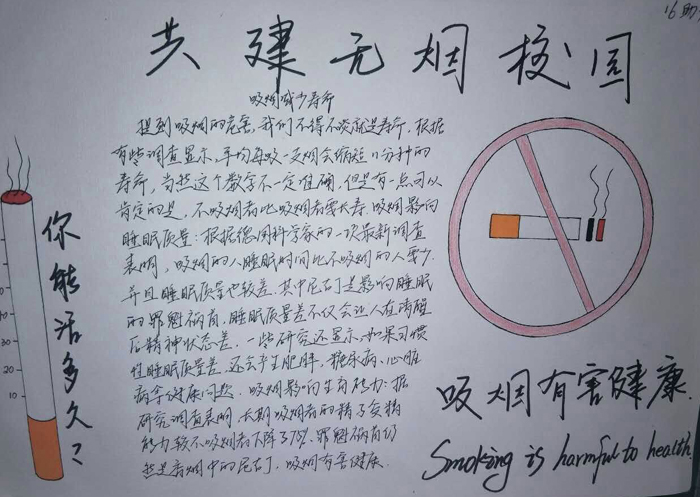 16助
共建无烟校园
吸烟减少寿命
提到吸烟的危害,我们不得不谈就是寿命.根据
有些调查显示,平均每吸一支烟会缩短11分钟的
寿命,当然这个数字不一定准确,但是有一点可以
肯定的是,不吸烟者比吸烟者要长寿.吸烟影响
睡眠质量:根据德国科学家的一次最新调查
表明,吸烟的人睡眠时间比不吸烟的人要少.
并且睡眠质量也较差.其中尼古丁是影响睡眠
的罪魁祸首,睡眠质量差不仅会让人在清醒
后精神状态差.一些研究还显示,如果习惯
性睡眠质量差,还会产生肥胖,糖尿病,心脏
病等健康问题.吸烟影响生育能力:据
研究调查表明,长期吸烟者的精子受精
能力较不吸烟者下降了75%.罪魁祸首仍
然是香烟中的尼古丁,吸烟有害健康.
你能活多久?
40
30
20
10
吸烟有害健康.
Smoking is harmful to health